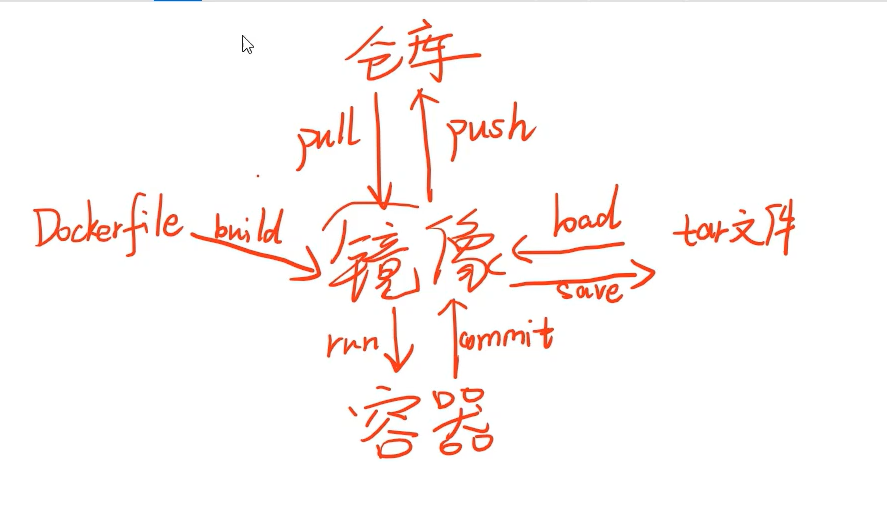 仓库
pull push
Dockerfile build 镜像 load tar文件
save
run commit
容器